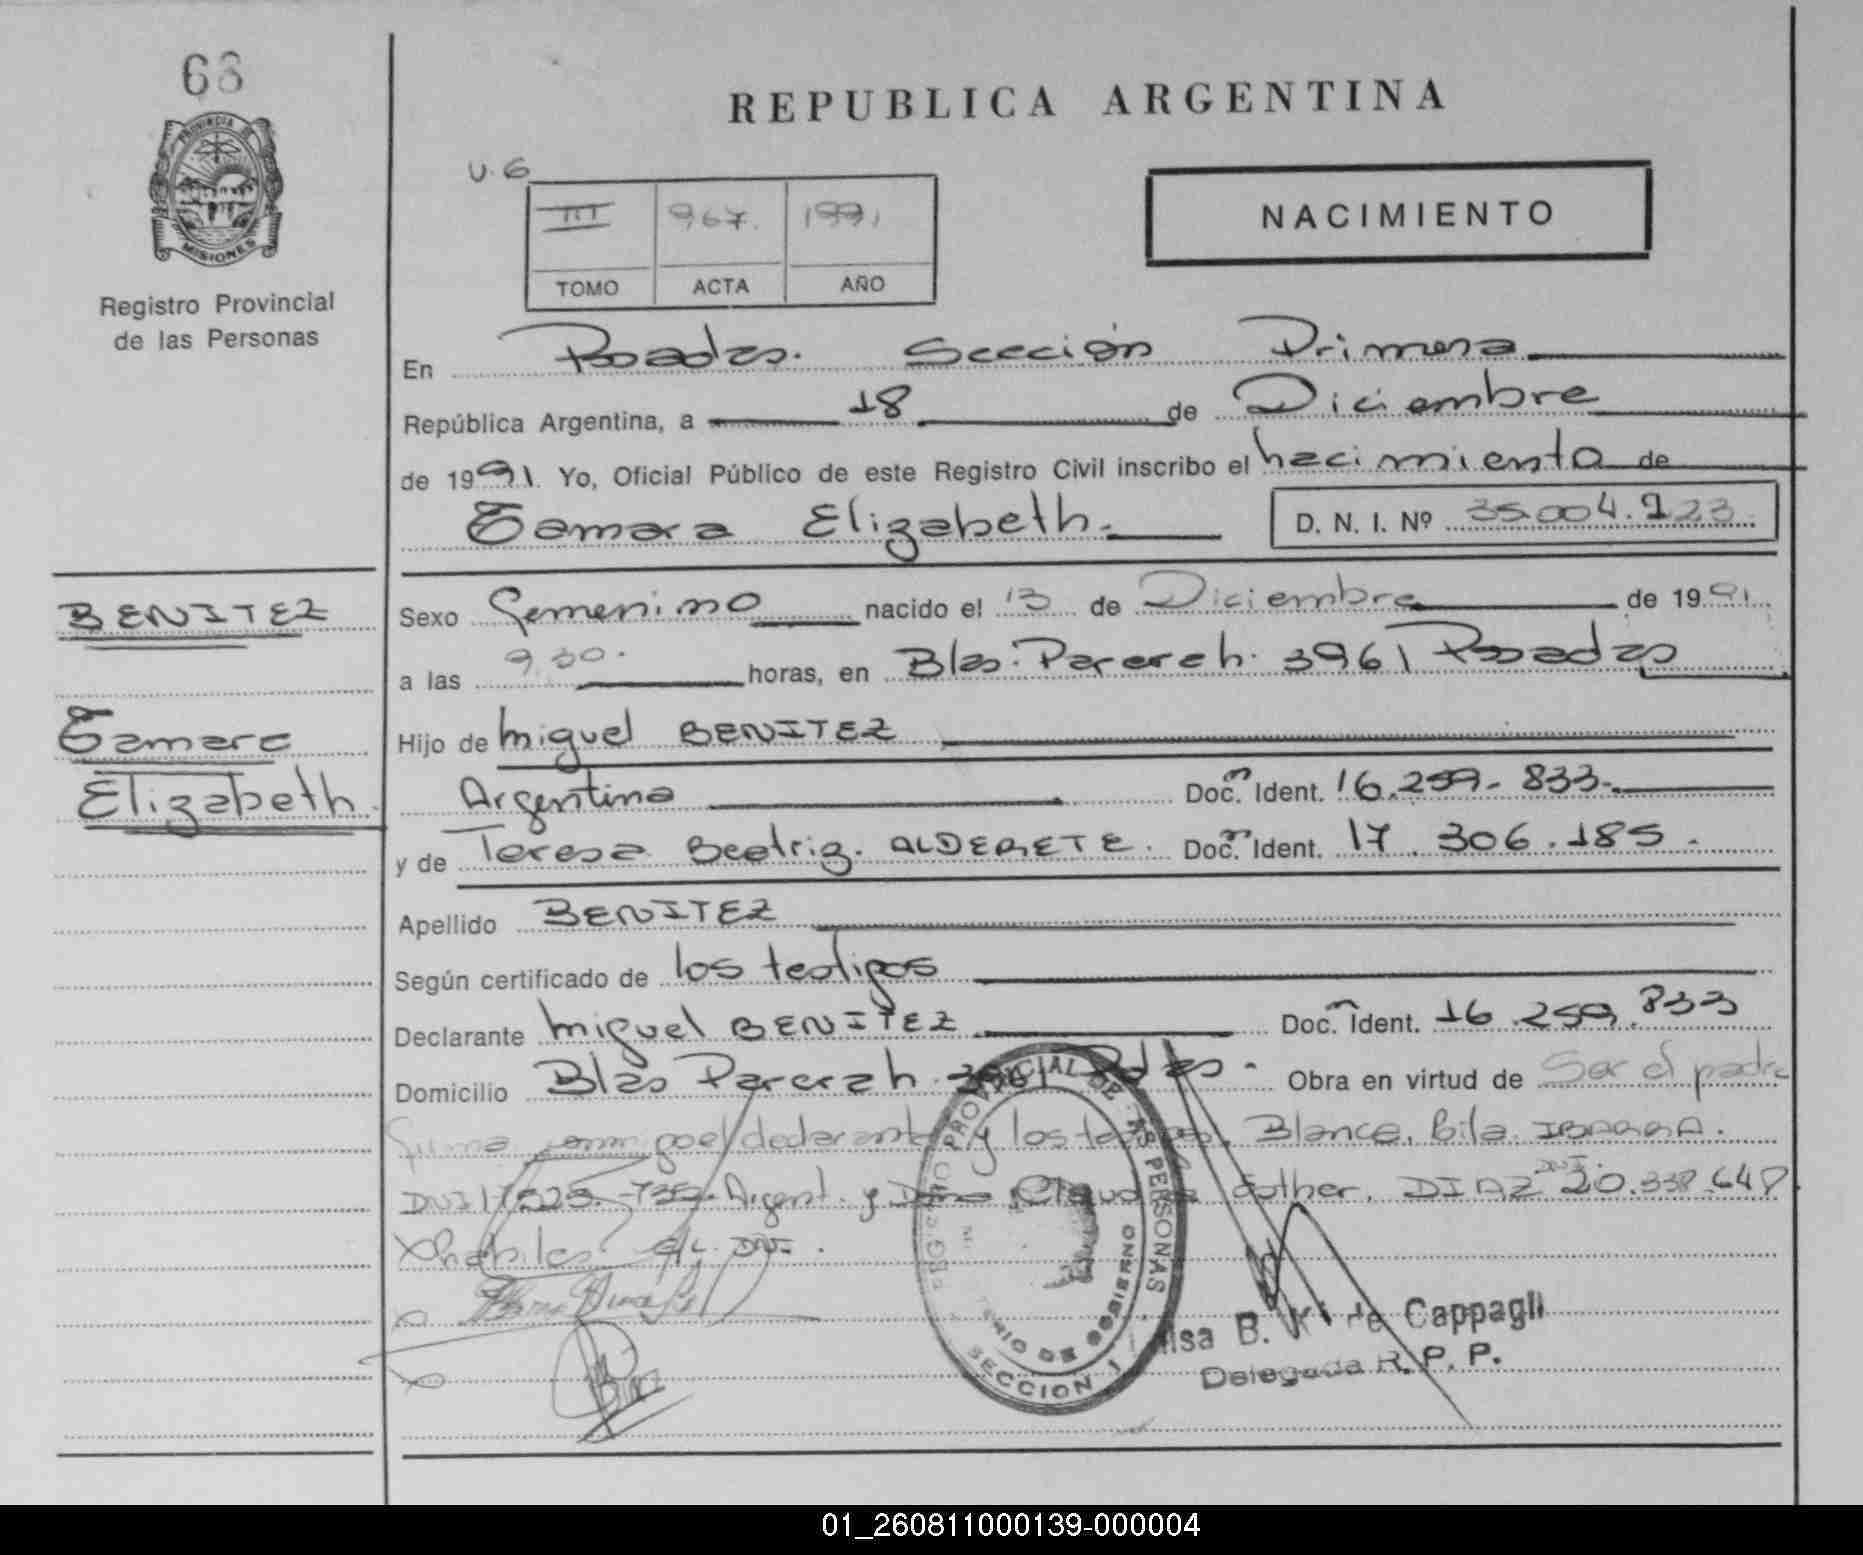 68
PROVINCIA DE
MISIONES
Registro Provincial
de las Personas
REPUBLICA ARGENTINA
U.6
III 967. 1991
TOMO ACTA AÑO
NACIMIENTO
En Posadas. Sección Primera
República Argentina, a 18 de Diciembre
de 1991. Yo, Oficial Público de este Registro Civil inscribo el nacimiento de
Tamara Elizabeth. D. N. I. Nº 35.004.923
BENITEZ
Tamara
Elizabeth.
Sexo Femenino nacido el 13 de Diciembre de 1991.
a las 9.30. horas, en Blas. Parerah. 3961 Posadas
Hijo de Miguel BENITEZ
Argentina Doc. Ident. 16.259.833.
y de Teresa Beatriz. ALDERETE. Doc. Ident. 17.306.185.
Apellido BENITEZ
Según certificado de los testigos
Declarante Miguel BENITEZ Doc. Ident. 16.259.833
Domicilio Blas Parerah 3961 Pdas. Obra en virtud de Ser el padre
firma el declarante y los testigos, Blanca. IBARRA.
DNI Argent. y Esther. DIAZ DNI. 20.338.648
hábiles DNI.
REGISTRO PROVINCIAL DE LAS PERSONAS
MINISTERIO DE GOBIERNO
SECCION 1
B. de Cappagli
Delegada R. P. P.
01_260811000139-000004